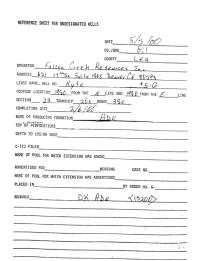 REFERENCE SHEET FOR UNDESIGNATED WELLS
DATE 5/3/80
OIL/GAS Oil
COUNTY Lea
OPERATOR Falcon Creek Resources Inc
ADDRESS 621 17th St. Suite
LEASE NAME, WELL NO. Kyte #5-G
FOOTAGE LOCATION 1980 FROM THE LINE AND 1980 FROM THE E LINE
SECTION 22 TOWNSHIP 20S RANGE 38E
COMPLETION DATE
NAME OF PRODUCING FORMATION Abo
TOP OF PERFORATIONS
DEPTH TO CASING SHOE
C-123 FILED
NAME OF POOL FOR WHICH EXTENSION WAS ASKED
ADVERTISED FOR HEARING CASE NO.
NAME OF POOL FOR WHICH EXTENSION WAS ADVERTISED
PLACED IN BY ORDER NO. R-
REMARKS DK Abo (15200)